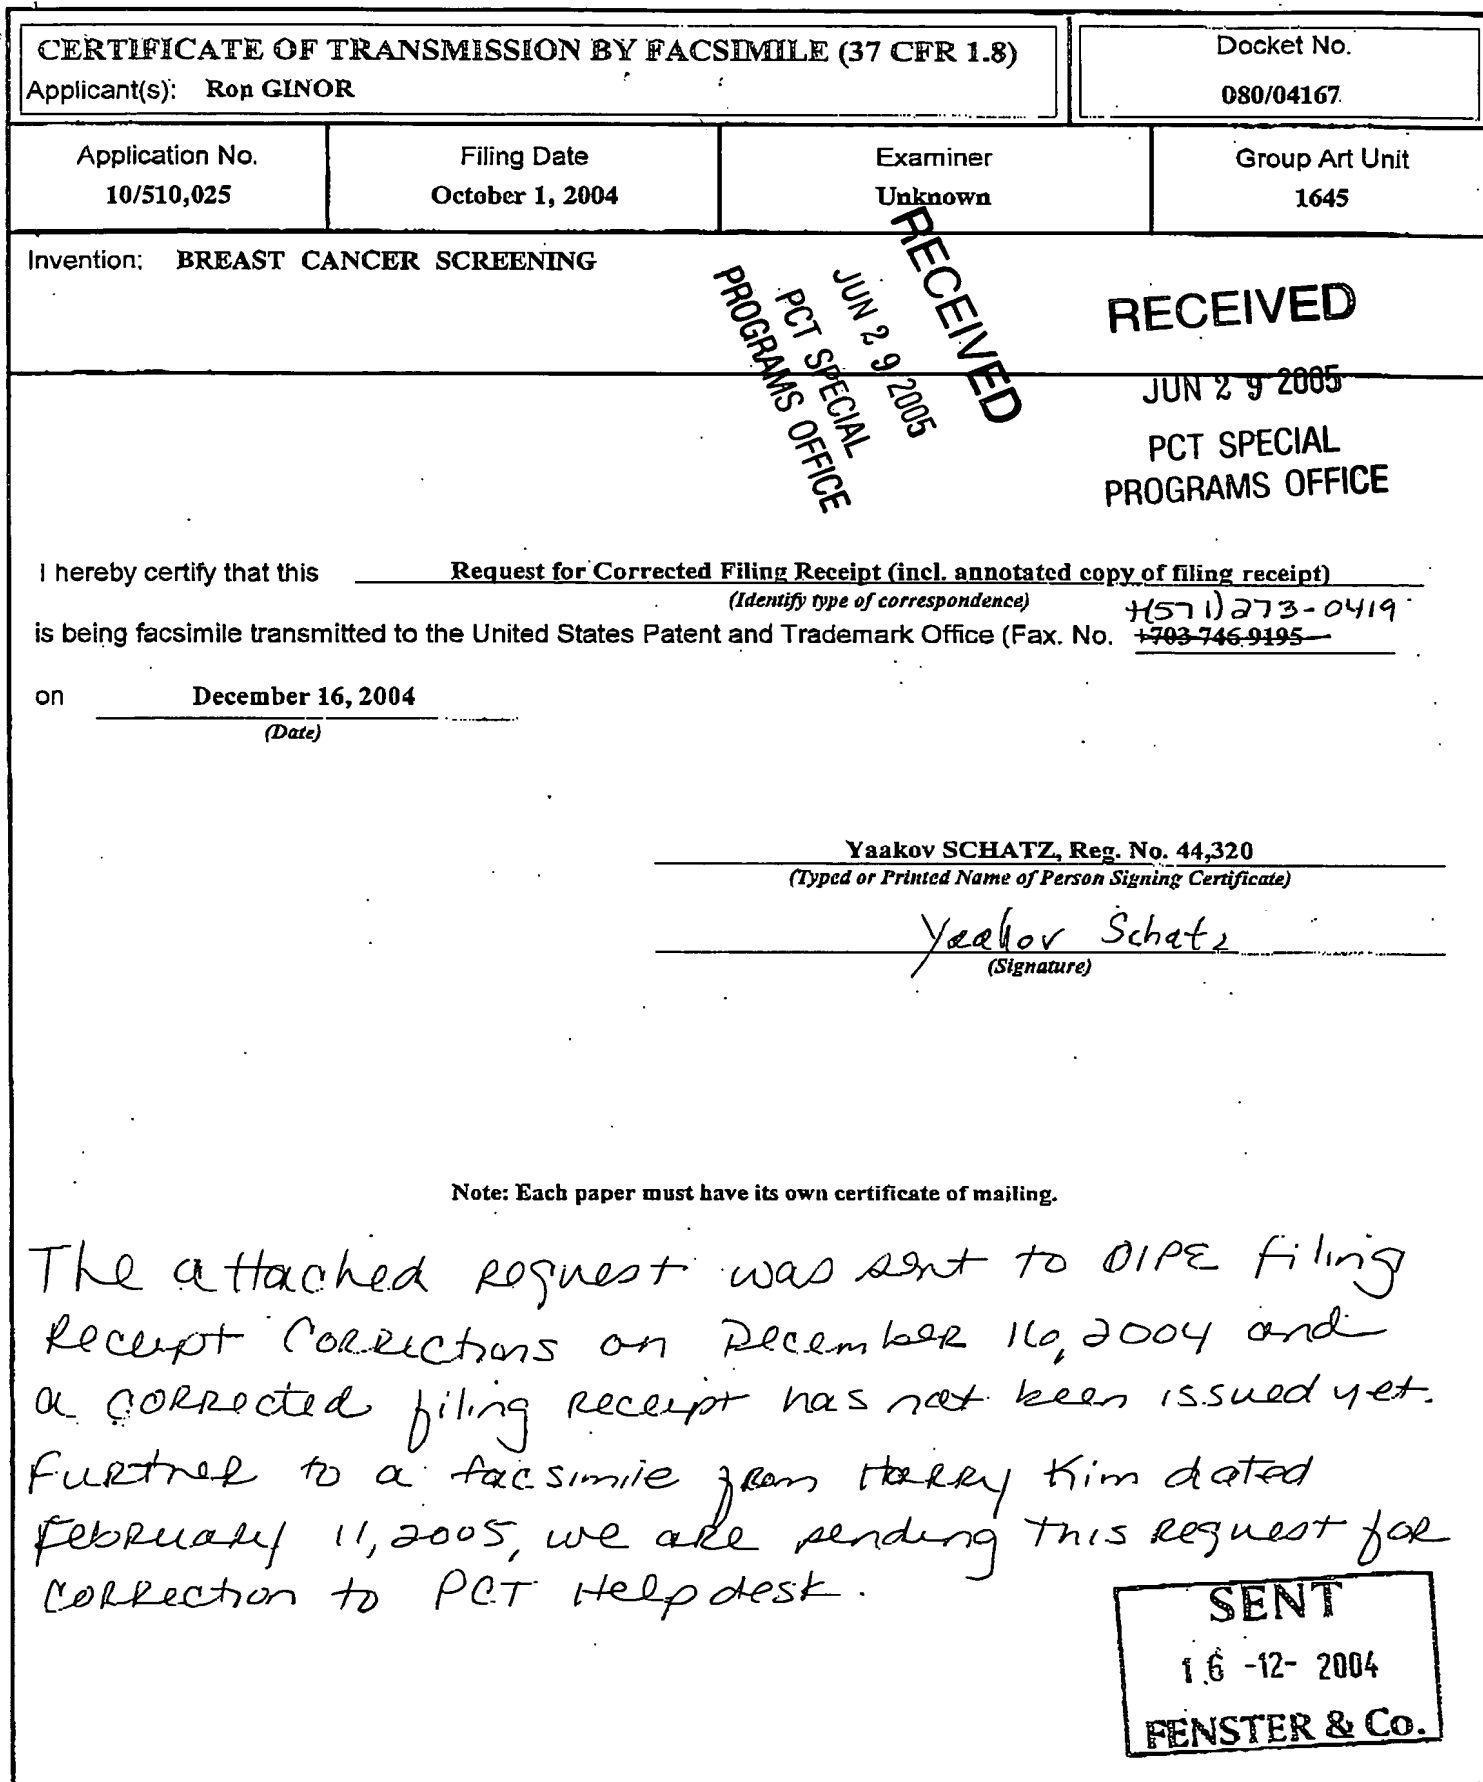 CERTIFICATE OF TRANSMISSION BY FACSIMILE (37 CFR 1.8)
Applicant(s): Ron GINOR
Docket No.
080/04167
Application No.
10/510,025
Filing Date
October 1, 2004
Examiner
Unknown
Group Art Unit
1645
Invention: BREAST CANCER SCREENING
RECEIVED
JUN 29 2005
PCT SPECIAL
PROGRAMS OFFICE
RECEIVED
JUN 29 2005
PCT SPECIAL
PROGRAMS OFFICE
I hereby certify that this Request for Corrected Filing Receipt (incl. annotated copy of filing receipt)
(Identify type of correspondence)
+(571)273-0419
is being facsimile transmitted to the United States Patent and Trademark Office (Fax. No. +703-746-9195
on December 16, 2004
(Date)
Yaakov SCHATZ, Reg. No. 44,320
(Typed or Printed Name of Person Signing Certificate)
Yaakov Schatz
(Signature)
Note: Each paper must have its own certificate of mailing.
The attached request was sent to OIPE filing
Receipt Corrections on December 16, 2004 and
a corrected filing receipt has not been issued yet.
Further to a facsimile from Harry Kim dated
February 11, 2005, we are sending this request for
correction to PCT Helpdesk.
SENT
16-12-2004
FENSTER & Co.